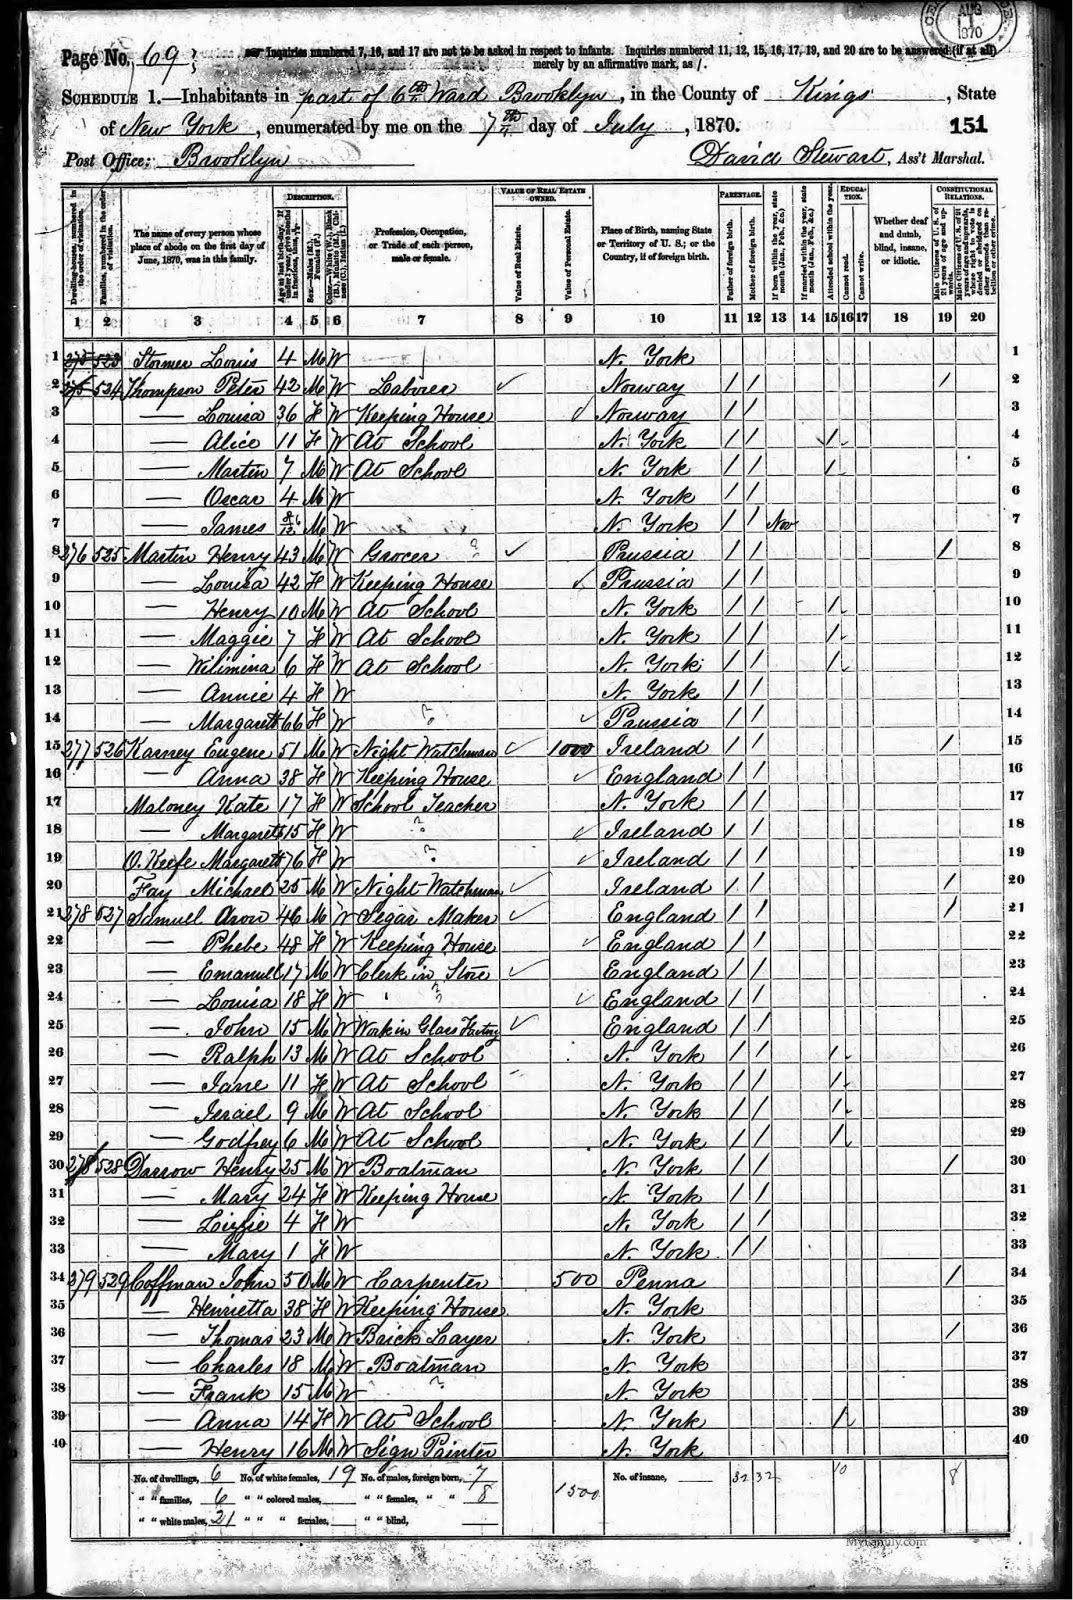 AUG 1 1870
Page No. 69
Inquiries numbered 7, 16, and 17 are not to be asked in respect to infants. Inquiries numbered 11, 12, 15, 16, 17, 19, and 20 are to be answered (if at all)
merely by an affirmative mark, as /.
SCHEDULE 1.—Inhabitants in part of 6th Ward Brooklyn, in the County of Kings, State
of New York, enumerated by me on the 7th day of July, 1870. 151
Post Office: Brooklyn David Stewart, Ass't Marshal.
DESCRIPTION. VALUE OF REAL ESTATE OWNED. PARENTAGE. EDUCATION. CONSTITUTIONAL RELATIONS.
Dwelling-houses, numbered in the order of visitation.
Families, numbered in the order of visitation.
The name of every person whose place of abode on the first day of June, 1870, was in this family.
Age at last birth-day. If under 1 year, give months in fractions, thus
Sex.—Males (M.), Females (F.)
Color.—White (W.), Black (B.), Chinese (C.), Indian (I.)
Profession, Occupation, or Trade of each person, male or female.
Value of Real Estate.
Value of Personal Estate.
Place of Birth, naming State or Territory of U. S.; or the Country, if of foreign birth.
Father of foreign birth.
Mother of foreign birth.
If born within the year, state month (Jan., Feb., &c.)
If married within the year, state month (Jan., Feb., &c.)
Attended school within the year.
Cannot read.
Cannot write.
Whether deaf and dumb, blind, insane, or idiotic.
Male Citizens of U. S. of 21 years of age and upwards.
1 2 3 4 5 6 7 8 9 10 11 12 13 14 15 16 17 18 19 20
1 275 523 Stormer Louis 4 M W N. York 1
2 275 524 Thompson Peter 42 M W Laborer ✓ Norway / / / 2
3 — Louisa 36 F W Keeping House ✓ Norway / / 3
4 — Alice 11 F W At School N. York / / / 4
5 — Martin 7 M W At School N. York / / / 5
6 — Oscar 4 M W N. York / / 6
7 — James 8/12 M W N. York / / Nov 7
8 276 525 Martin Henry 43 M W Grocer ? ✓ Prussia / / / 8
9 — Louisa 42 F W Keeping House ✓ Prussia / / 9
10 — Henry 10 M W At School N. York / / / 10
11 — Maggie 7 F W At School N. York / / / 11
12 — Wilimina 6 F W At School N. York / / / 12
13 — Annie 4 F W N. York / / 13
14 — Margarett 66 F W ? ✓ Prussia / / 14
15 277 526 Karney Eugene 51 M W Night Watchman ✓ 1000 Ireland / / / 15
16 — Anna 38 F W Keeping House ✓ England / / 16
17 Maloney Kate 17 F W School Teacher N. York / / 17
18 — Margarett 15 F W ? ✓ Ireland / / 18
19 O. Keefe Margarett 76 F W ? ✓ Ireland / / 19
20 Fay Michael 25 M W Night Watchman ✓ Ireland / / / 20
21 278 527 Samuel Aron 46 M W Segar Maker ✓ England / / / 21
22 — Phebe 48 F W Keeping House ✓ England / / 22
23 — Emanuel 17 M W Clerk in Store ✓ England / / 23
24 — Louisa 18 F W ? ✓ England / / 24
25 — John 15 M W Work in Glass Factory ✓ England / / 25
26 — Ralph 13 M W At School N. York / / / 26
27 — Jane 11 F W At School N. York / / / 27
28 — Israel 9 M W At School N. York / / / 28
29 — Godfrey 6 M W At School N. York / / / 29
30 278 528 Darrow Henry 25 M W Boatman N. York / / / 30
31 — Mary 24 F W Keeping House N. York / / 31
32 — Lizzie 4 F W N. York / / 32
33 — Mary 1 F W N. York / / 33
34 279 529 Coffman John 50 M W Carpenter 500 Penna / 34
35 — Henrietta 38 F W Keeping House N. York 35
36 — Thomas 23 M W Brick Layer N. York / 36
37 — Charles 18 M W Boatman N. York 37
38 — Frank 15 M W ? N. York 38
39 — Anna 14 F W At School N. York / 39
40 — Henry 16 M W Sign Painter N. York 40
No. of dwellings, 6 No. of white females, 19 No. of males, foreign born, 7 1500 No. of insane, 32 32 10 8
" " families, 6 " " colored males, " " females, " " 8
" " white males, 21 " " " females, " " blind,
MyFamily.com